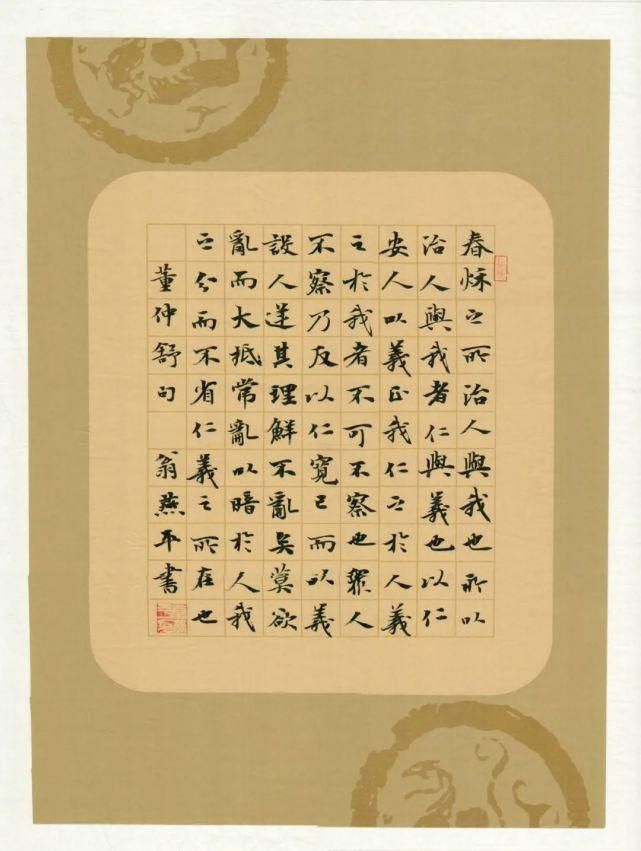 春秋之所治人與我也所以
治人與我者仁與義也以仁
安人以義正我仁之於人義
之於我者不可不察也衆人
不察乃反以仁寬己而以義
設人逆其理鮮不亂矣莫欲
亂而大抵常亂以暗於人我
之分而不省仁義之所在也
董仲舒句 翁燕平書